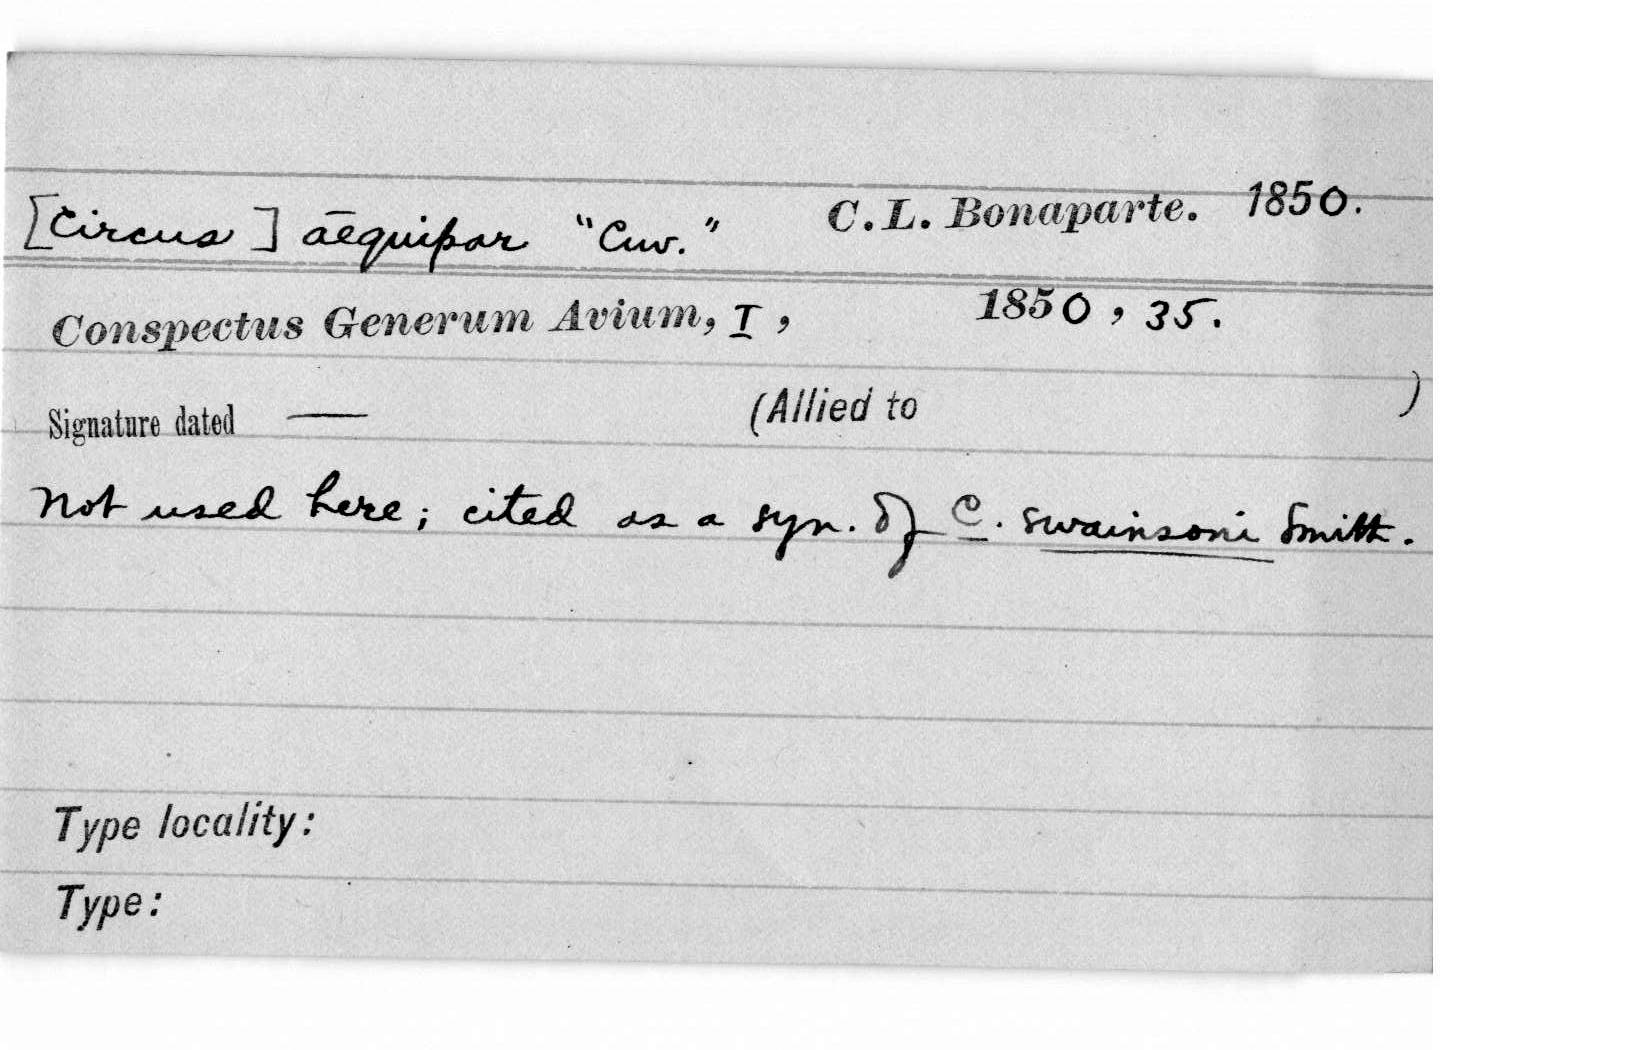 [Circus] aēquipar "Cuv." C.L. Bonaparte. 1850.
Conspectus Generum Avium, I, 1850, 35.
Signature dated — (Allied to )
Not used here; cited as a syn. of C. swainsoni Smith.
Type locality:
Type: